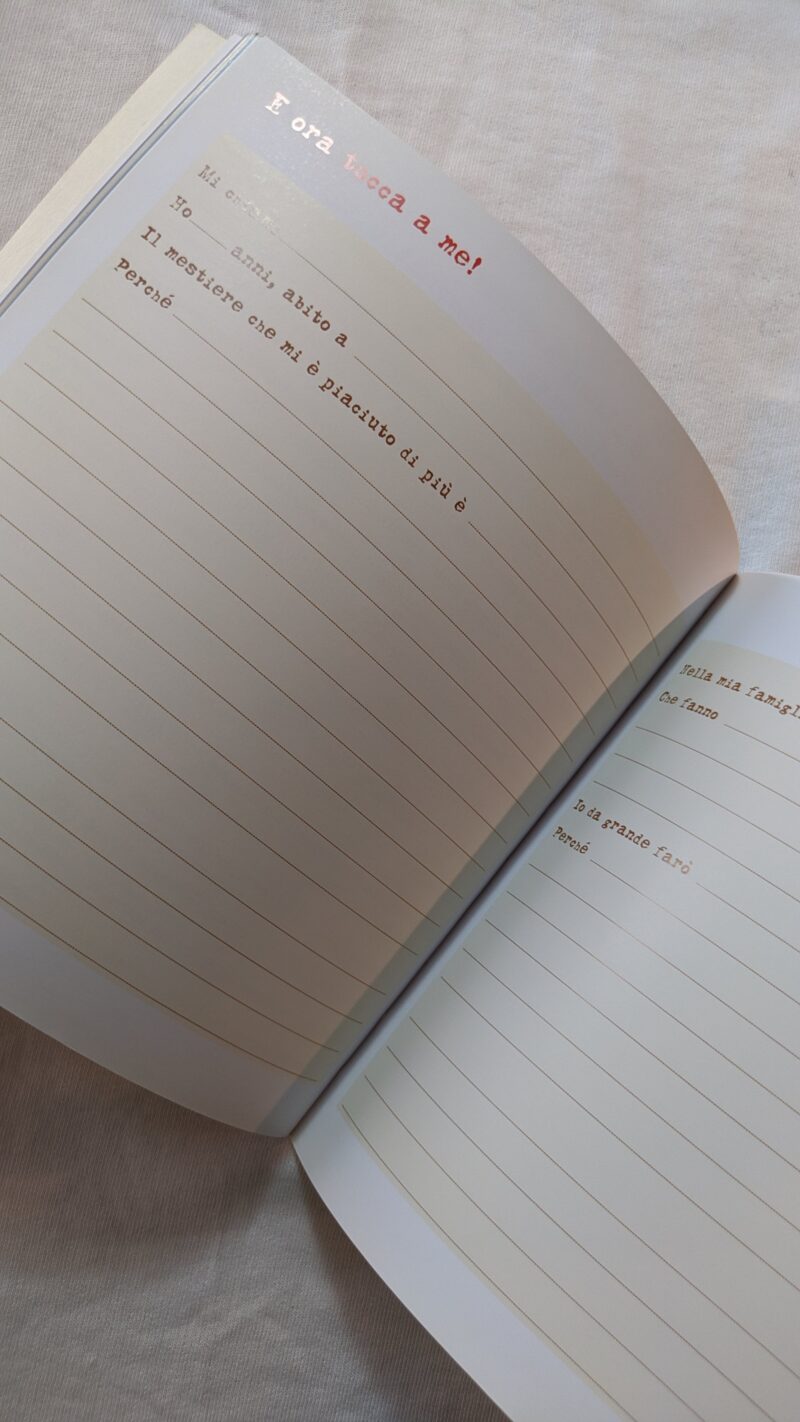 E ora tocca a me!
Mi chiamo
Ho anni, abito a
Il mestiere che mi è piaciuto di più è
Perché
Nella mia
Che fanno
Io da grande farò
Perché